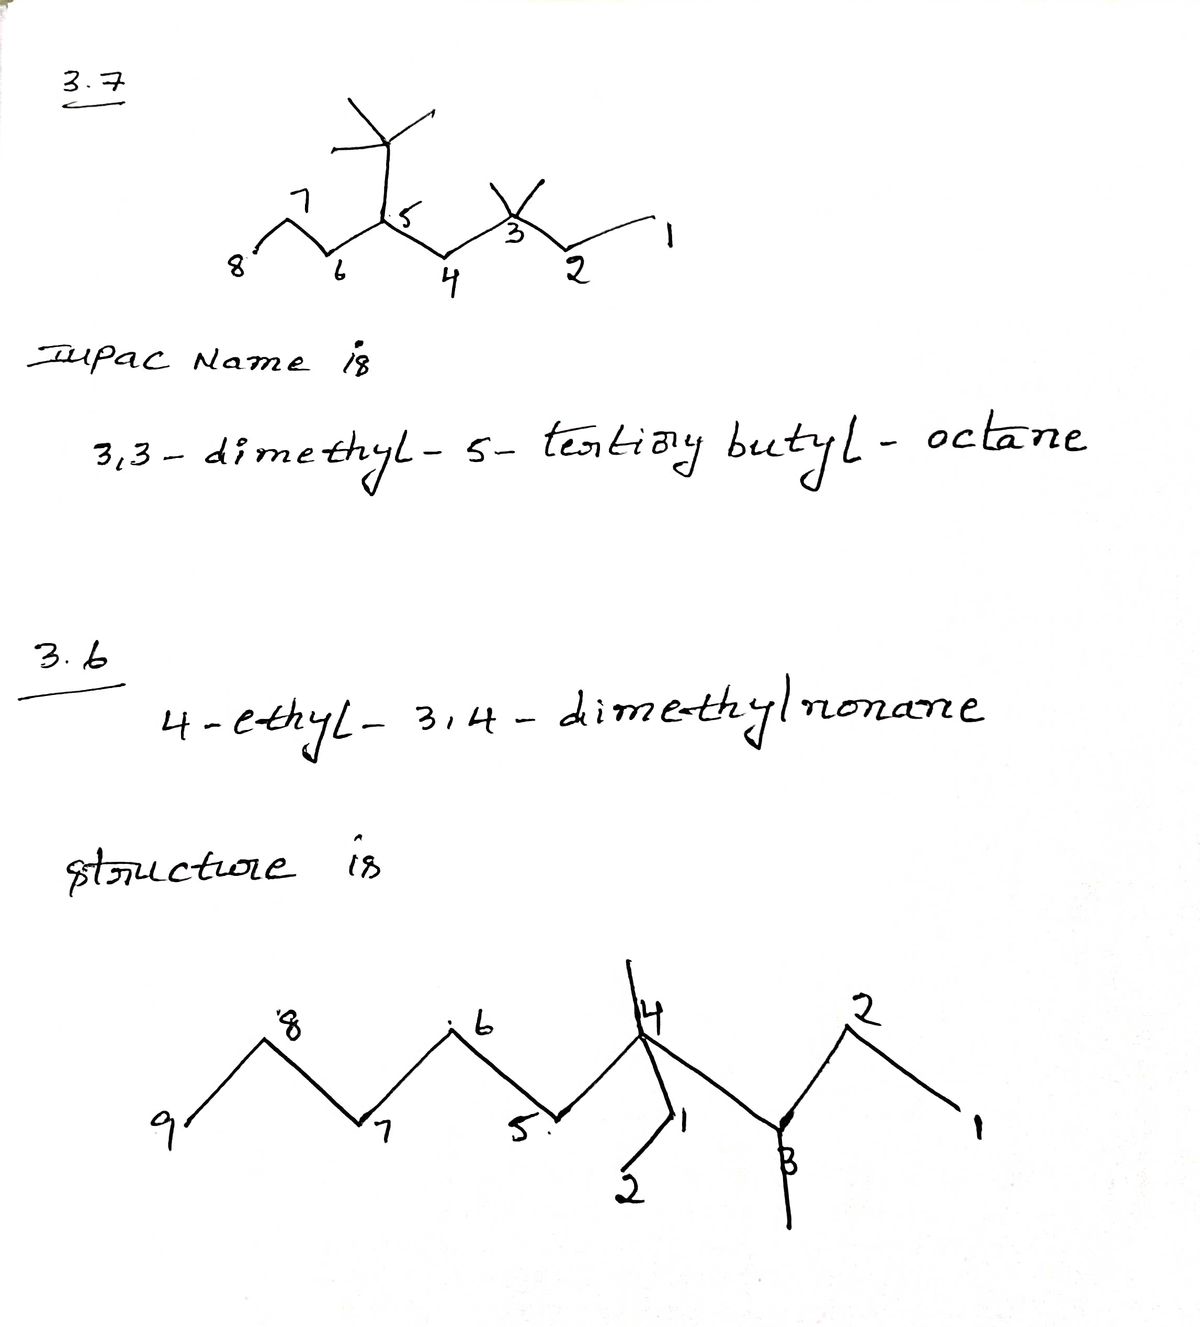 3.7
7
5
3
1
8
6
4
2
IUPAC Name is
3,3 - dimethyl - 5 - tertiary butyl - octane
3.6
4 - ethyl - 3,4 - dimethylnonane
structure is
8
6
4
2
9
7
5
1
3
1
2